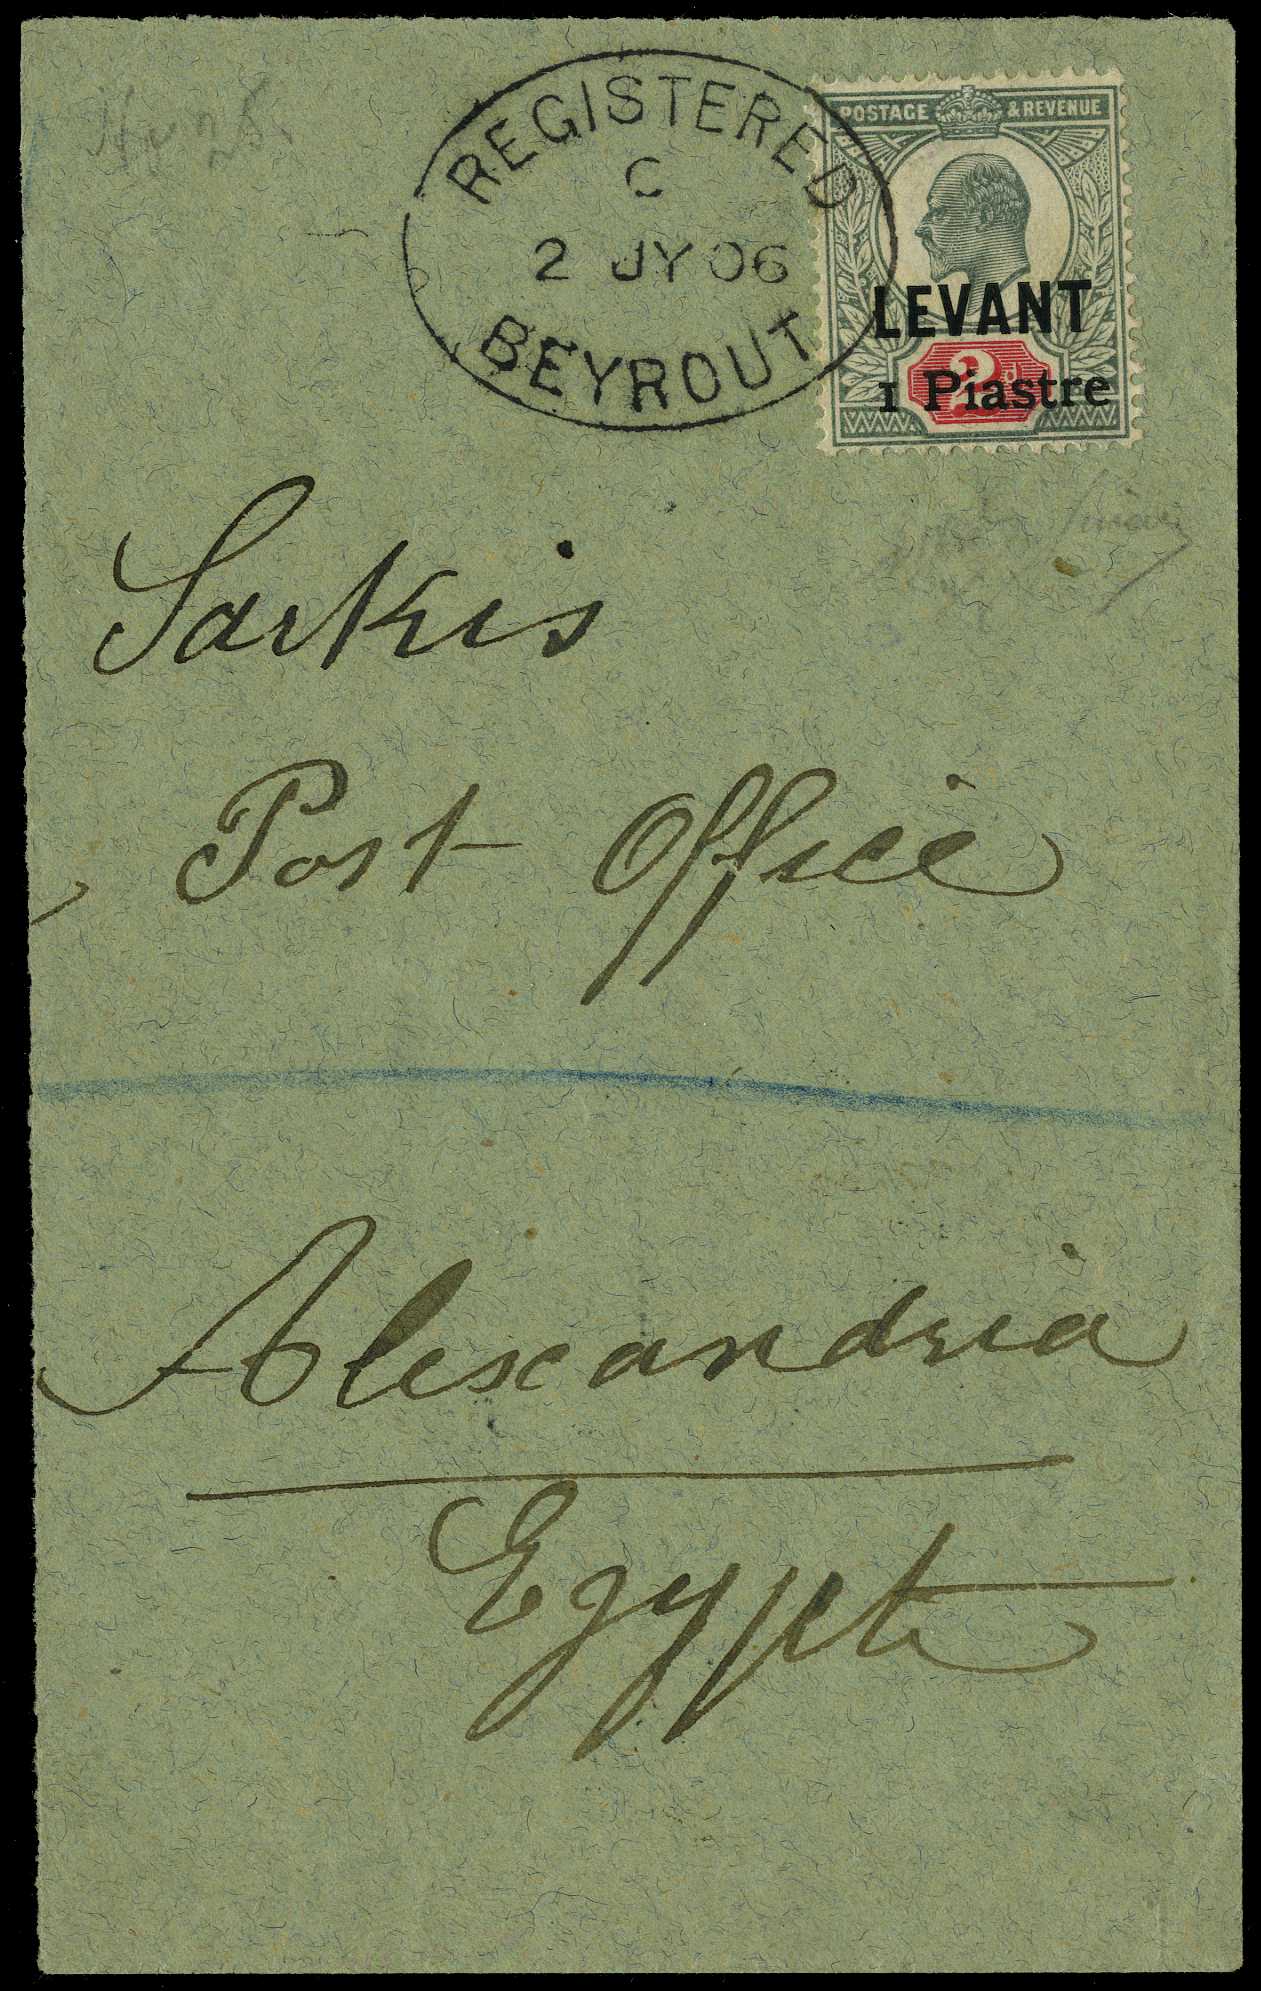 REGISTERED
C
2 JY 06
BEYROUT
POSTAGE & REVENUE
LEVANT
2d
1 Piastre
Sarkis
Post Office
Alexandria
Egypt